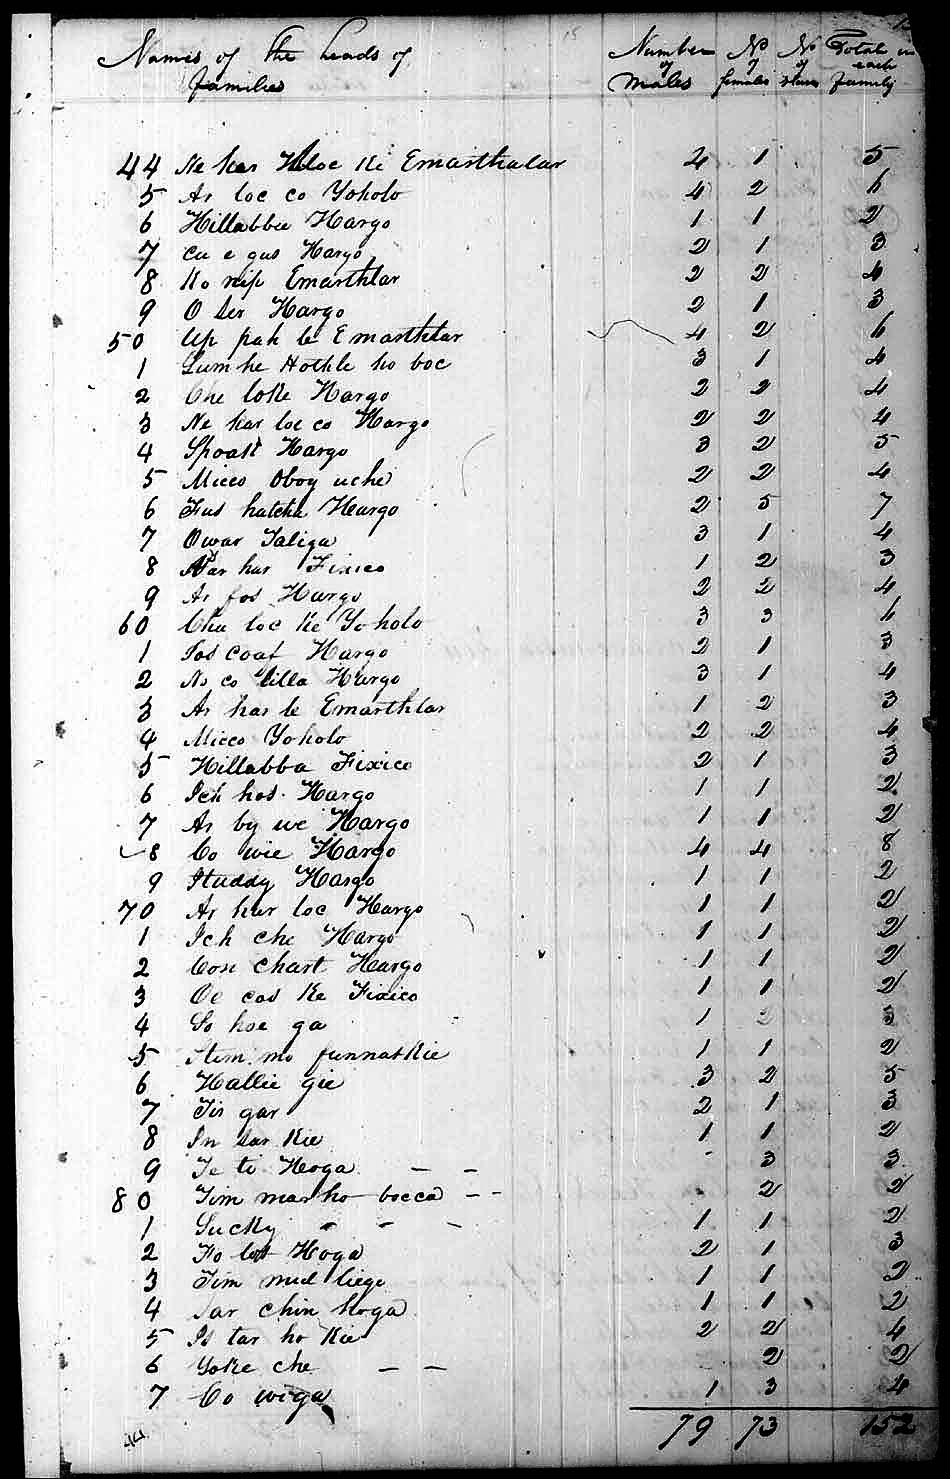 Names of the heads of Number No No Total in
families of males of females of slaves each family
44 Ne har Hloc Ki Emarthalar 4 1 5
5 Ar loc co Yoholo 4 2 6
6 Hillabba Hargo 1 1 2
7 Cu e gus Hargo 2 1 3
8 Ko nip Emarthlar 2 2 4
9 O ser Hargo 2 1 3
50 Up pah le Emarthlar 4 2 6
1 Lumhe Hothle ho boc 3 1 4
2 Che loke Hargo 2 2 4
3 Ne har loc co Hargo 2 2 4
4 Spoak Hargo 3 2 5
5 Micco Oboy uche 2 2 4
6 Fus hatcha Heargo 2 5 7
7 Owar Taliga 3 1 4
8 har Fixico 1 2 3
9 Ar fos Hargo 2 2 4
60 Cha loc Ke Yoholo 3 3 6
1 Tos coaf Hargo 2 1 3
2 No co tilla Hargo 3 1 4
3 Ar har le Emarthlar 1 2 3
4 Micco Yoholo 2 2 4
5 Hillabba Fixico 2 1 3
6 Ich hos Hargo 1 1 2
7 Ar by we Hargo 1 1 2
8 Co wie Hargo 4 4 8
9 Studdy Hargo 1 1 2
70 Ar har loc Hargo 1 1 2
1 Ich che Hargo 1 1 2
2 Con chart Hargo 1 1 2
3 Oc cos Ke Fixico 1 1 2
4 So hoe ga 1 2 3
5 Stem mo funnatkie 1 1 2
6 Hallie gie 3 2 5
7 Tis gar 2 1 3
8 In sar Kie 1 1 2
9 Te ti Hoga - - 3 3
80 Tim mar ho bocca - - 2 2
1 Sucky - - - 1 1 2
2 Fo lot Hoga 2 1 3
3 Tim mul liege 1 1 2
4 Sar chin hoga 1 1 2
5 Is tar ho Kie 2 2 4
6 Yoke che - - 2 2
7 Co wiga 1 3 4
79 73 152
44